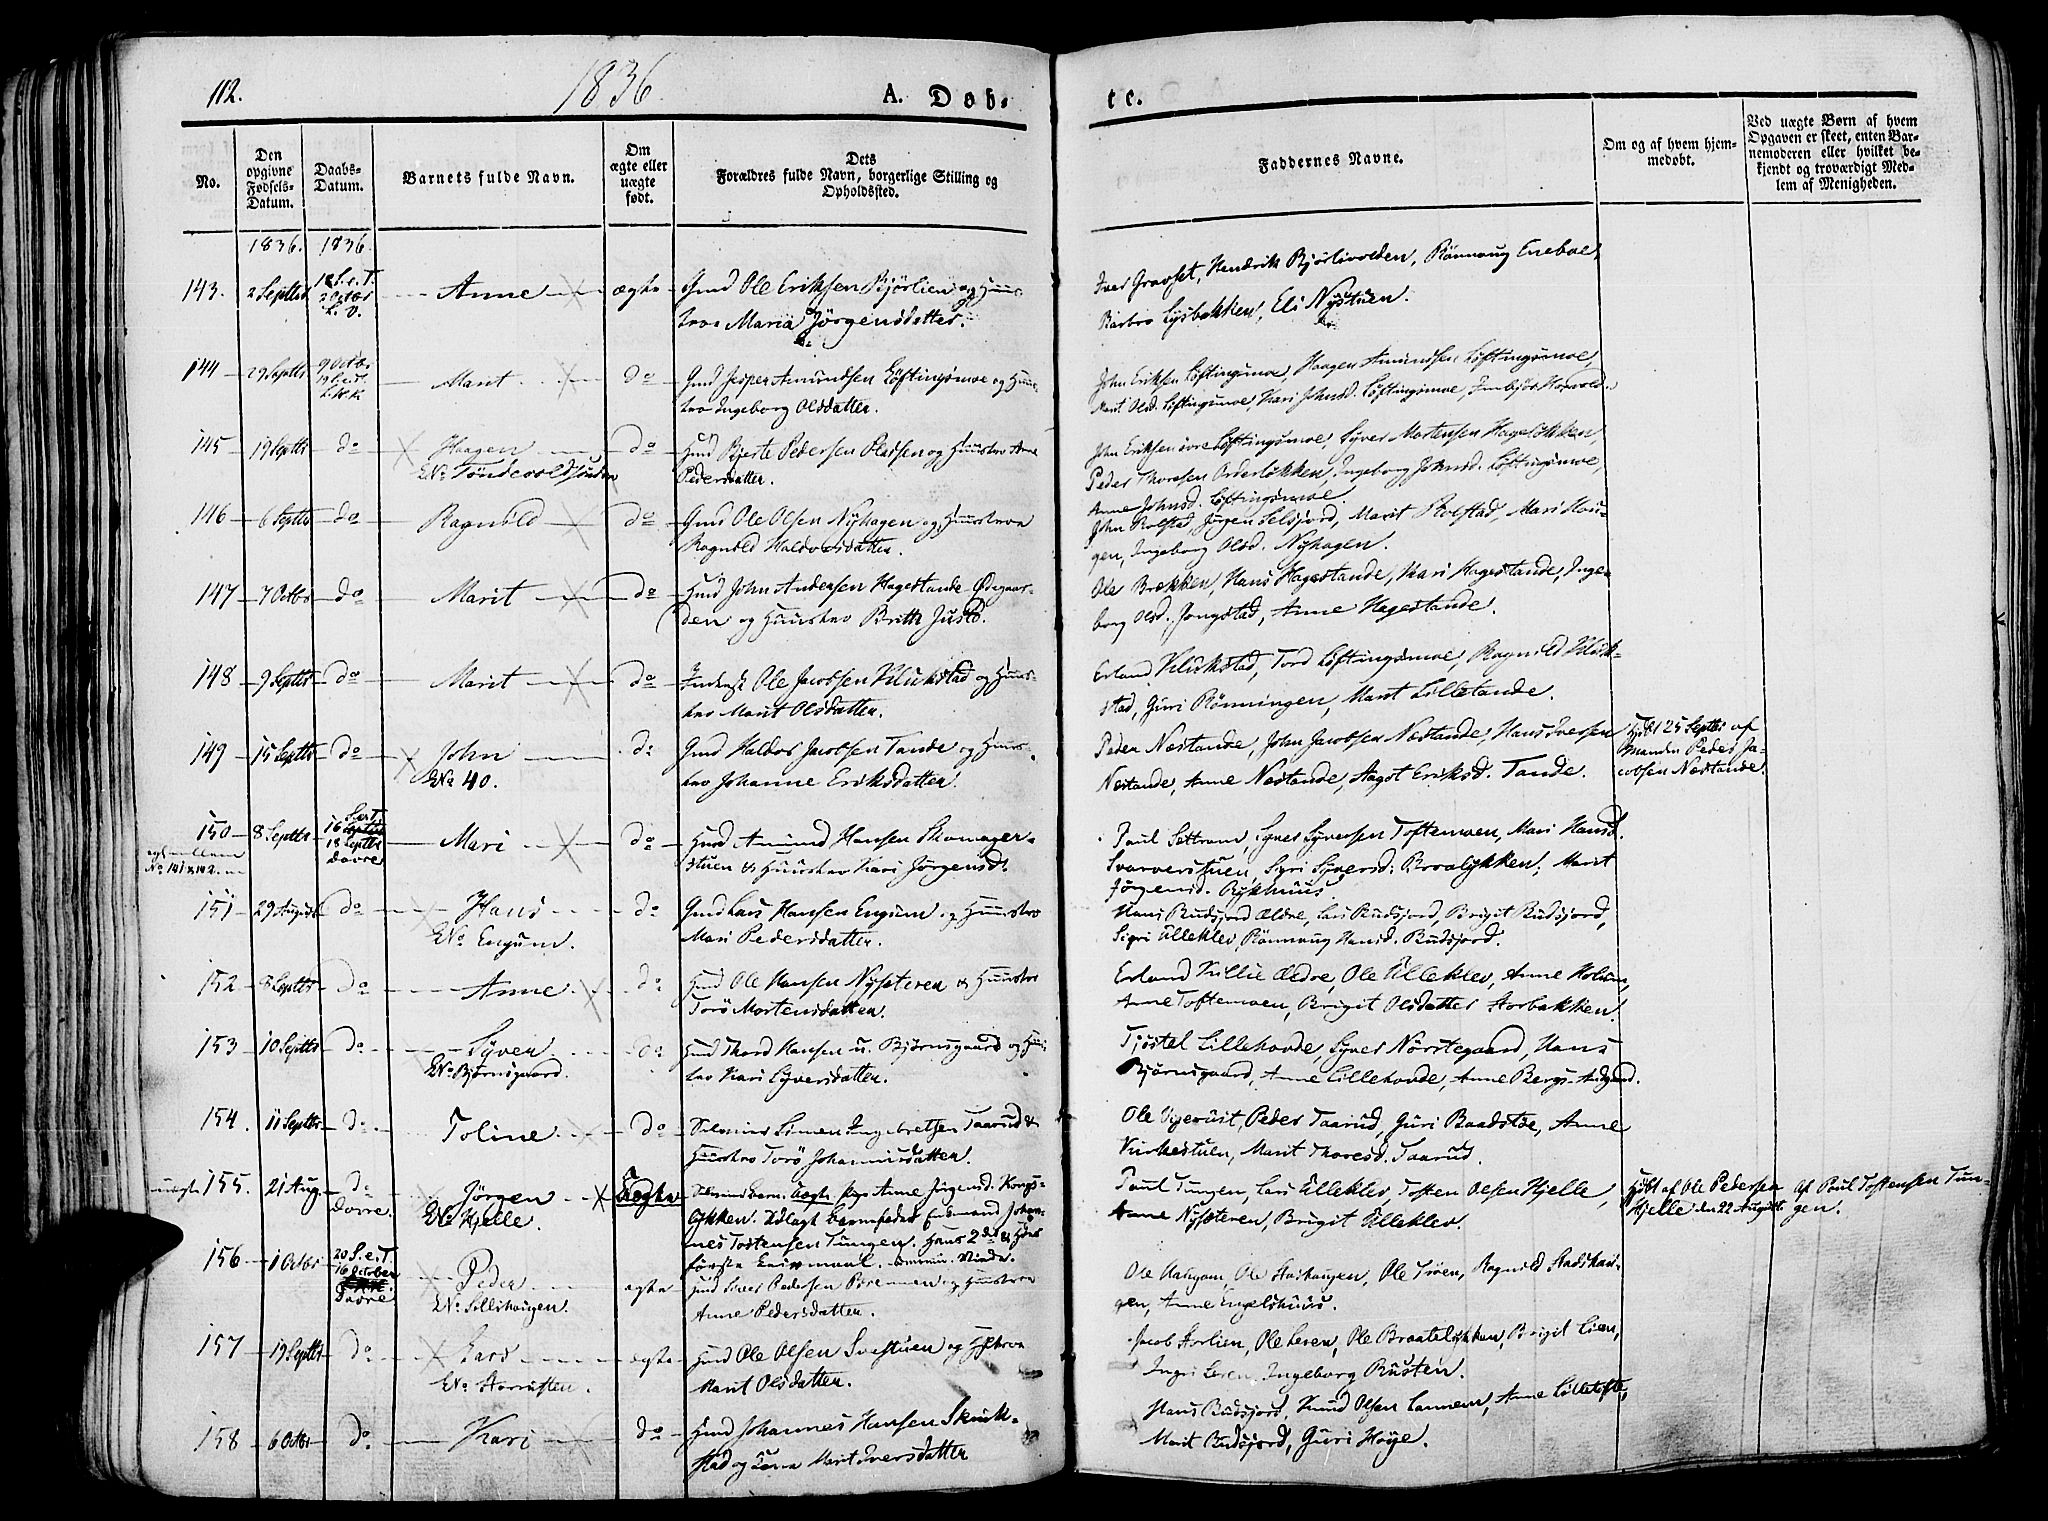 112.
1836
A. Døb-
te.
No.
Den opgivne Fødsels-Datum.
Daabs-Datum.
Barnets fulde Navn.
Om ægte eller uægte født.
Dets Forældres fulde Navn, borgerlige Stilling og Opholdssted.
Faddernes Navne.
Om og af hvem hjemmedøbt.
Ved uægte Børn af hvem Opgaven er skeet, enten Barnemoderen eller hvilket bekjendt og troværdigt Medlem af Menigheden.
1836. 1836.
143. 2 Septbr 18 S. e. T. 2 Octbr Anne ægte Gmd Ole Eriksen Bjørlien og Huus-
troe Maria Jørgensdatter.
Iver Gravset, Hendrik Bjørlivolden, Rönnaug Eneboe,
Barbro Lysbakken, Eli Nystuen.
144 29 Septbr 9 Octbr 19 S. e. T. Marit do Gmd Jesper Amundsen Löftingsmoe og Huus-
tro Ingeborg Olsdatter.
John Eriksen Löftingsmoe, Haagen Amundsen Löftingsmoe,
Marit Olsd. Löftingsmoe, Kari Johnsd. Löftingsmoe,
145 19 Septbr do Haagen do Huusmd Bjerte Pedersen Pladsen og Huustro Anne
Pedersdatter.
John Eriksen øvre Löftingsmoe, Syver Mortensen Hageløkken,
Peder Thoresen Orderløkken, Ingeborg Johnsd. Löftingsmoe,
Anne Johnsd. Löftingsmoe.
146 6 Septbr do Ragnild do Gmd Ole Olsen Nyhagen og Huustroe
Ragnild Haldorsdatter.
John Rolstad, Jörgen Selsjord, Marit Rolstad, Mari Hau-
gen, Ingeborg Olsd. Nyhagen.
147 7 Octbr do Marit do Hmd John Andersen Hagestande Ødegaar-
den og Huustro Britte Justd.
Ole Brækken, Hans Hagestande, Kari Hagestande, Inge-
borg Olsd. Jongstad, Anne Hagestande.
148 9 Septbr do Marit do Ole Jacobsen Klukstad og Huus-
tro Marit Olsdatter.
Erland Klukstad, Tord Löftingsmoe, Ragnild Kluk-
stad, Guri Rönningen, Marit Lilletande.
149 15 Septbr do John do Gmd Haldor Jacobsen Tande og Huus-
No 40. tro Johanne Eriksdatter.
Peder Nestande, John Jacobsen Nestande, Hans Iversen
Nestande, Anne Nestande, Aagot Eriksd. Tande.
Hjdt 25 Septbr af
Manden Peder Ja-
cobsen Nestande.
150 8 Septbr 16 S. e. T. 18 Septbr Dovre Mari do Hmd Amund Hansen Skomager-
stuen & Huustro Kari Jørgensd.
No 141 & 142.
Paul Settrem, Syver Syversen Toftemoen, Mari Hansd.
Svarverstuen, Sigri Siversd. Braaløkken, Marit
Jörgensd. Rykhuus
151 29 August do Hans do Gmd Lars Hansen Engum og Huustro
No Engum. Mari Pedersdatter.
Hans Budsjord Ældre, Lars Budsjord, Brigit Budsjord,
Sigri Ulleklev, Rönnaug Hansd. Budsjord.
152 8 Septbr do Anne do Hmd Ole Hansen Nysæteren & Huustro
Torö Mortensdatter.
Erland Killie Ældre, Ole Ulleklev, Anne Holum,
Anne Toftemoen, Brigit Olsdatter Storbakken.
153 10 Septbr do Syver do Hmd Thord Hansen u. Bjørnsgaard og Huus-
No Bjørnsgaard. tro Kari Syversdatter.
Tjøstel Lillehovde, Syver Nörstegaard, Hans
Bjørnsgaard, Anne Lillehovde, Anne Bergs-Ødegaard.
154. 11 Septbr do Toline do Simen Ingebretsen Taarud &
Huustro Torö Johannisdatter.
Ole Vigerüst, Peder Taarud, Guri Baadstøe, Anne
Kirkestuen, Marit Thoresd. Taarud.
uægte 155. 21 Aug. do Dovre. Jörgen Uægte Anne Jörgensd. Kongs-
No Hjelle. løkken. Udlagt Barnefader Enkemand Johan-
nes Tostensen Tungen. Hans 2de & Hendes
første Leiermaal.
Paul Tungen, Lars Ulleklev, Tosten Olsen Hjelle,
Anne Nysæteren, Brigit Ulleklev.
Hjdt af Ole Pedersen
Hjelle den 22 August.
Af Paul Tostensen Tun-
gen.
156 1 Octbr 20 S. e. T. 16 October Dovre Peder ægte Hmd Pedersen og Huustroe
No Lillehaugen. Anne Pedersdatter.
Ole Haugan, Ole Stushaugen, Ole Troen, Ragnild
gen, Anne Engelshuus.
157 19 Septbr do Lars ægte Hmd Ole Olsen Svestuen og Hustroe
Marit Olsdatter.
Jacob Storlien, Ole Leren, Ole Braateløkken, Brigit Lien,
Ingri Leren, Ingeborg Rusten.
158 6 Octbr do Kari do Hmd Johannes Hansen Skruk-
stad og Kone Marit Iversdatter
Hans Budsjord, Knud Olsen Lannem, Anne Lilletofte,
Marit Budsjord, Guri Høye.